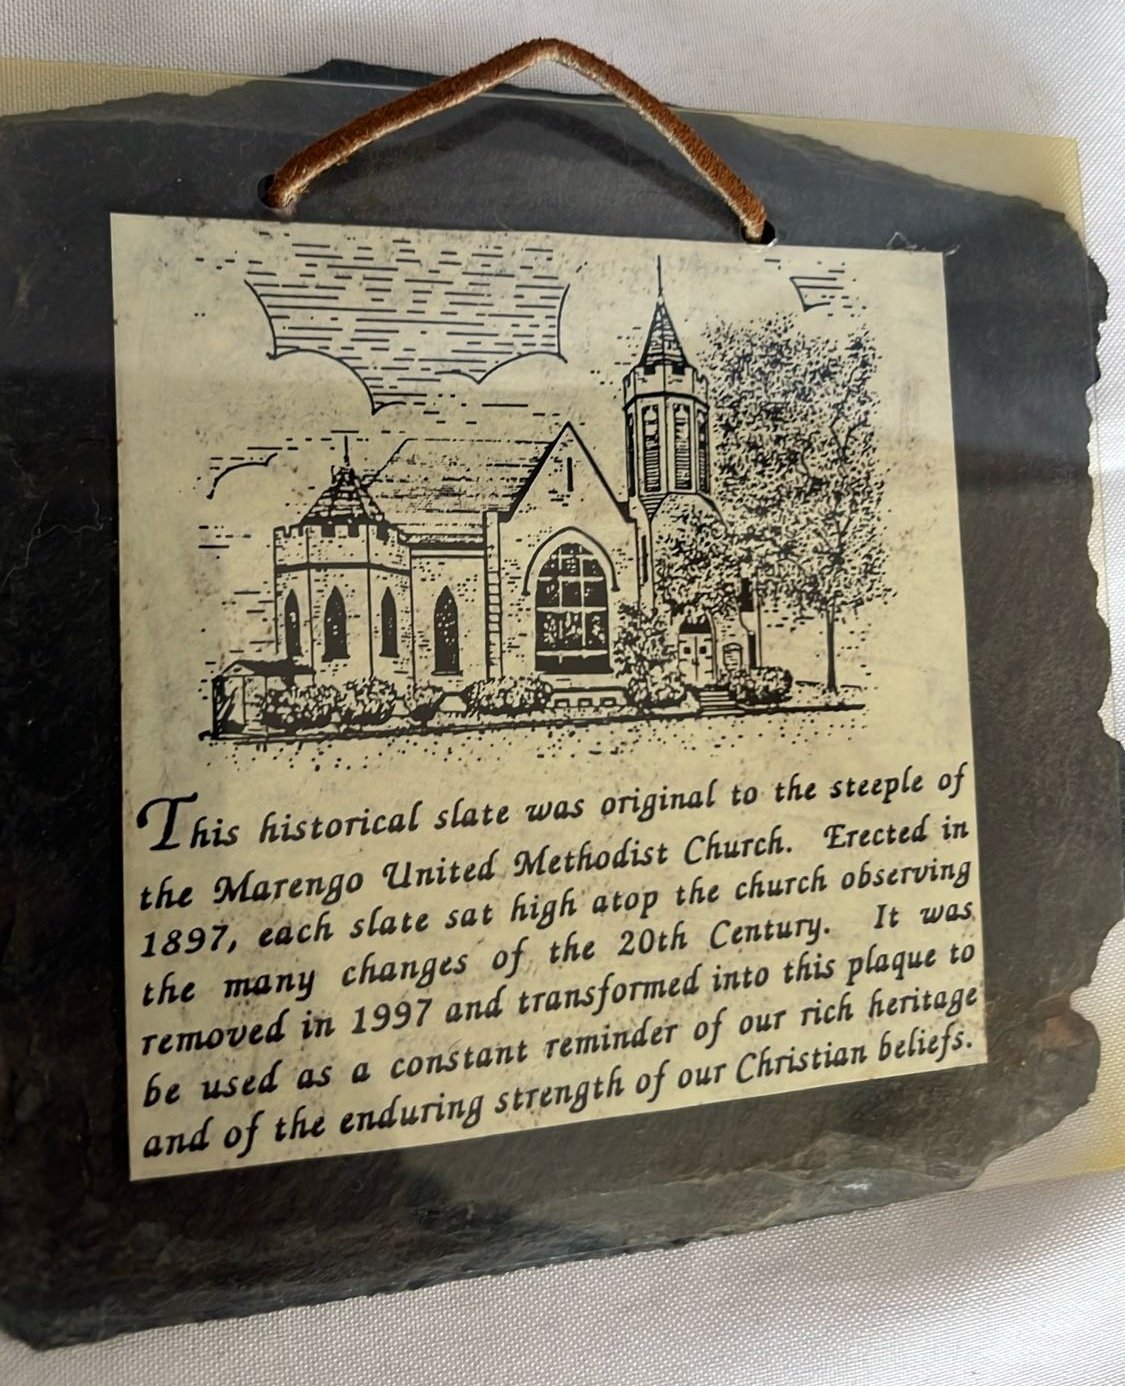 This historical slate was original to the steeple of
the Marengo United Methodist Church. Erected in
1897, each slate sat high atop the church observing
the many changes of the 20th Century. It was
removed in 1997 and transformed into this plaque to
be used as a constant reminder of our rich heritage
and of the enduring strength of our Christian beliefs.